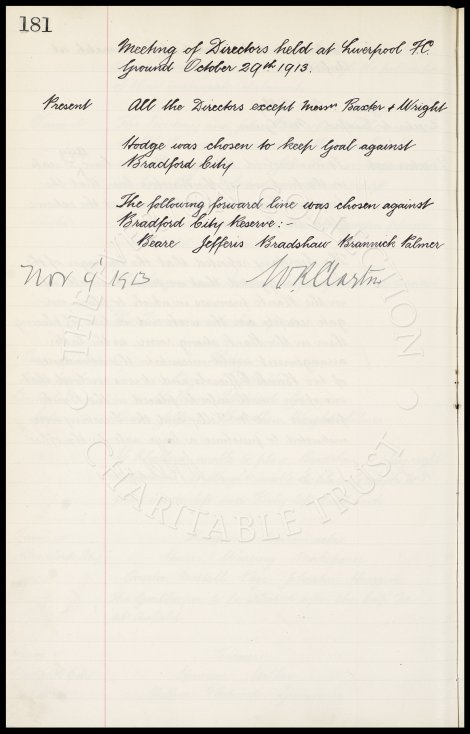 181
Meeting of Directors held at Liverpool F.C.
Ground October 29th 1913.
Present All the Directors except Messrs Baxter & Wright
Hodge was chosen to keep Goal against
Bradford City
The following forward line was chosen against
Bradford City Reserve:-
Beare Jefferis Bradshaw Brannick Palmer
Nov 4 1913 W R Clayton
THE COLLECTION
CHARITABLE TRUST